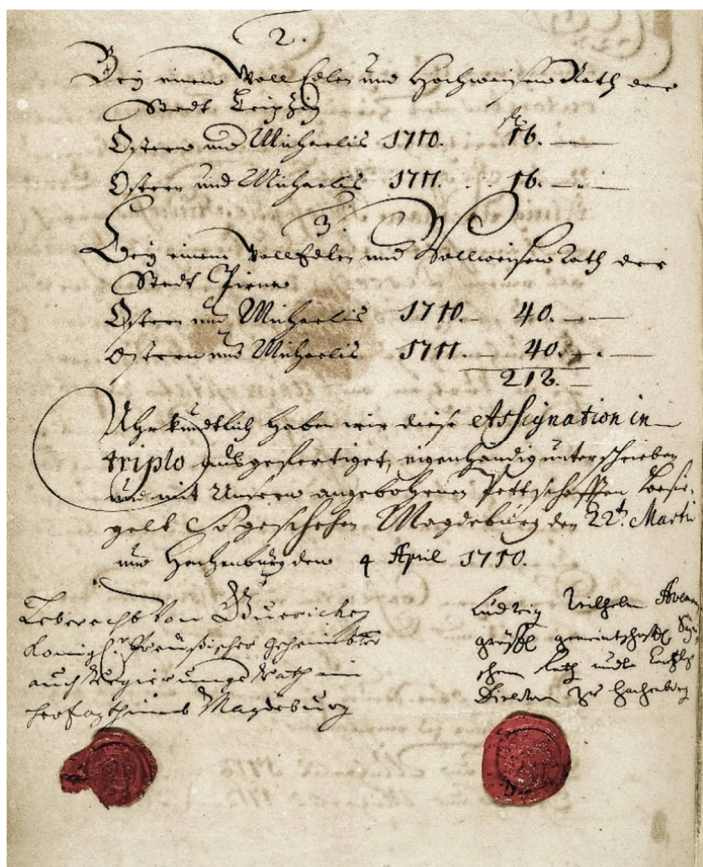 2.
Bey einem WollEdlen und Hochweisen Rath der
Stadt Leipzig
Ostern und Michaelis 1710. 16.
Ostern und Michaelis 1711. 16.
3.
Bey einem WollEdlen und Wollweisen Rath der
Stadt Pirna
Ostern und Michaelis 1710. 40.
Ostern und Michaelis 1711. 40.
212.
Uhrkundtlich haben wir diese Assignation in
triplo ausgefertiget, eigenhändig unterschrieben
und mit Unsern angebohrenen Pettschafften besie-
gelt So geschehen Magdeburg den 22t. Martii
und Hachenburg den 4 April 1710.
Leberecht von Guericke
Königl. Preußischer geheimbter
auch Regierungs Rath im
Herzogthumb Magdeburg
Ludwig Wilhelm
gräffl gemeinschafftl
Rath undt
Director zu Hachenburg